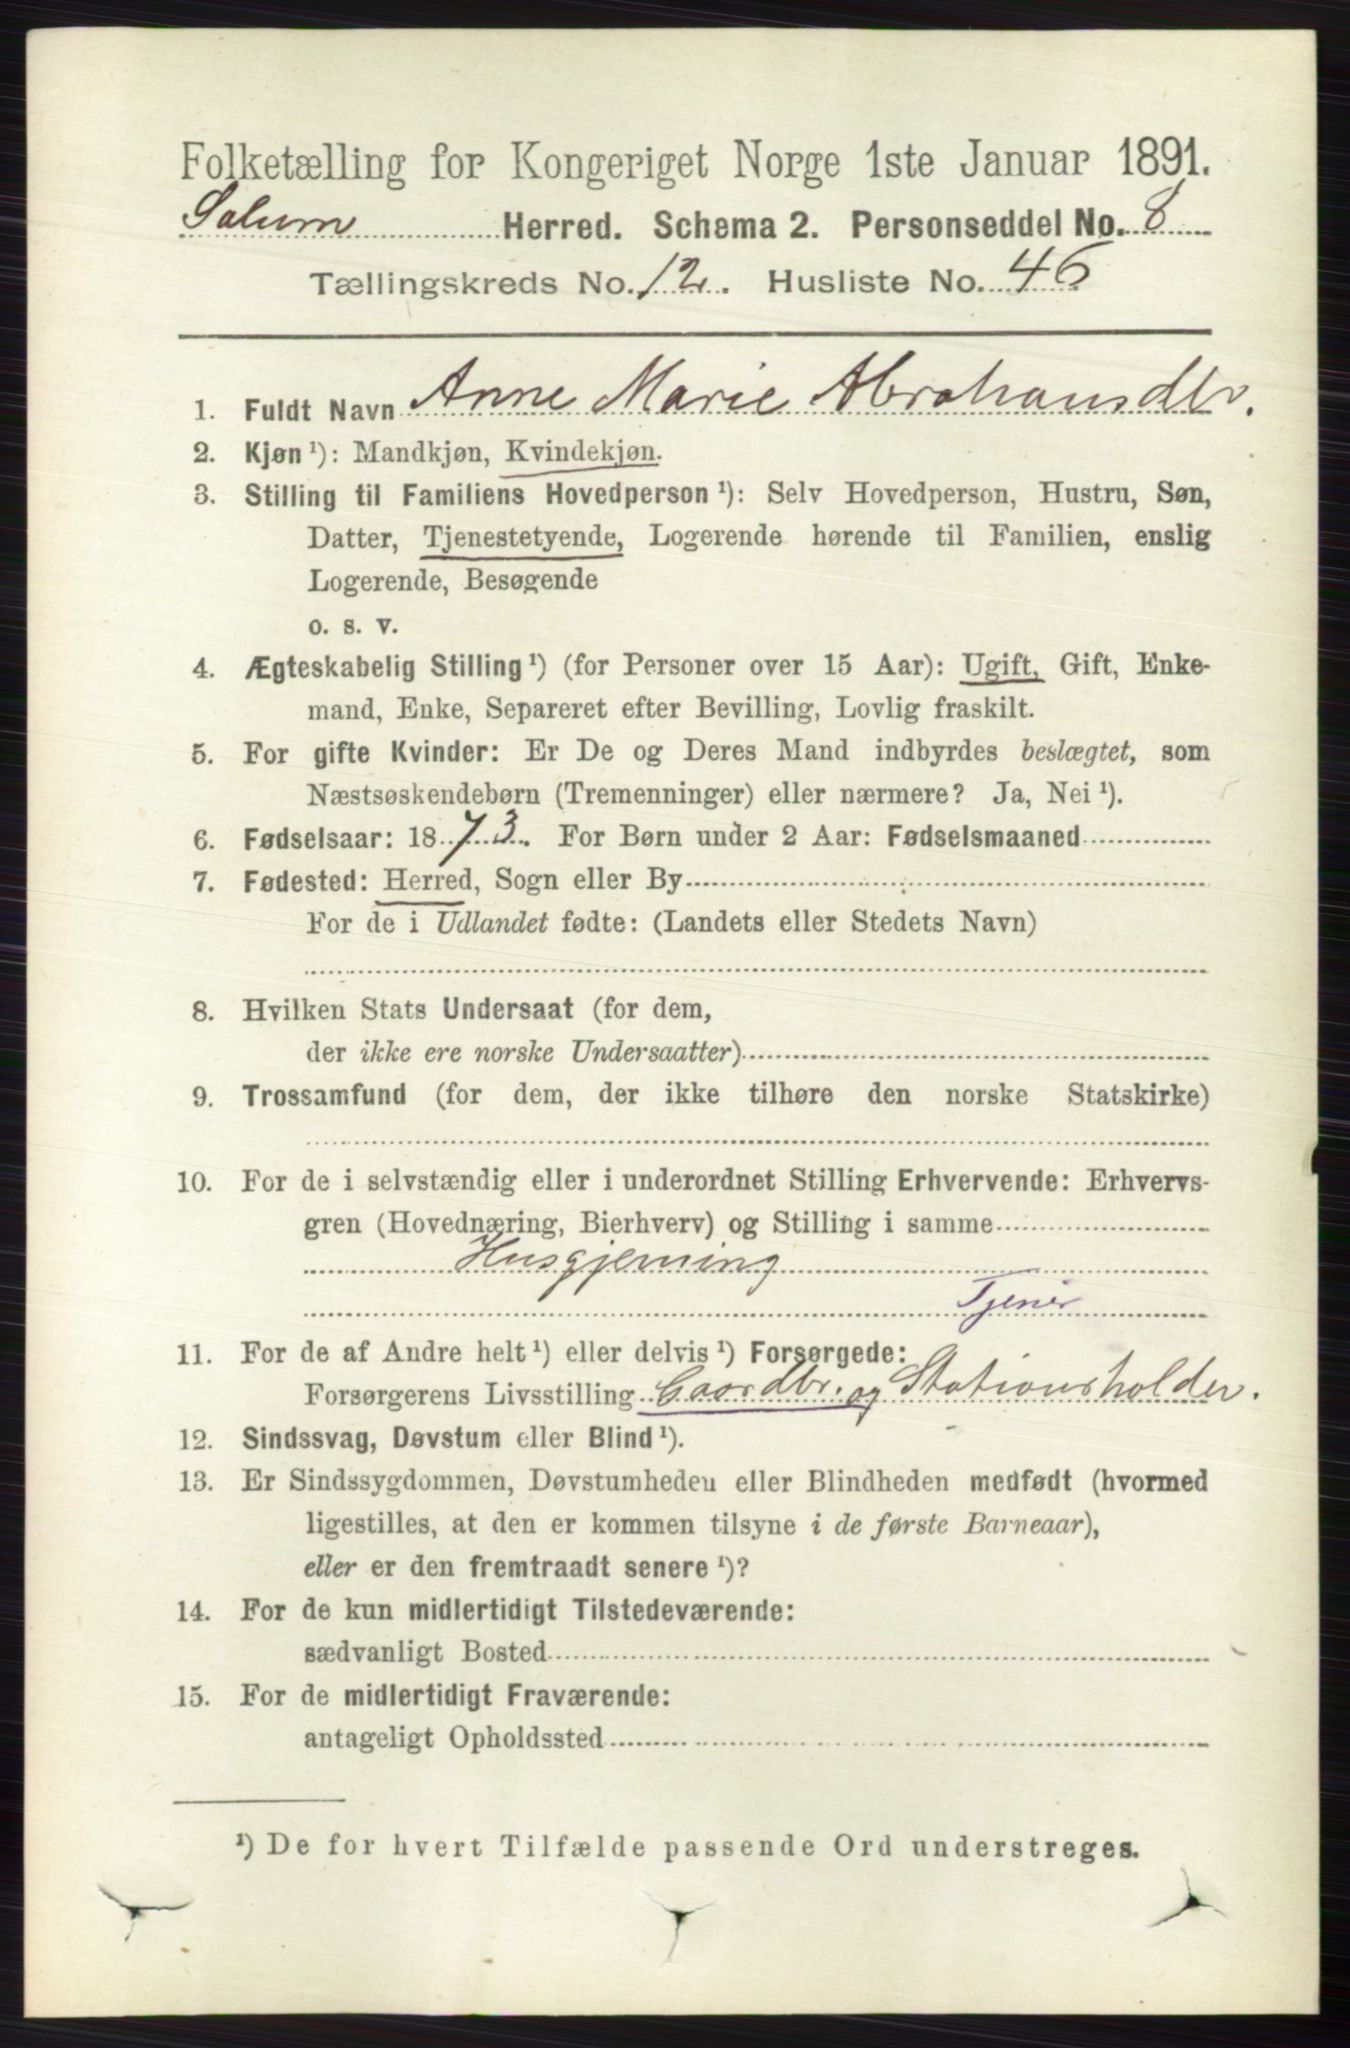 Folketælling for Kongeriget Norge 1ste Januar 1891.
Solum Herred. Schema 2. Personseddel No. 8
Tællingskreds No. 12. Husliste No. 46
1. Fuldt Navn Anne Marie Abrahamsdtr.
2. Kjøn ¹): Mandkjøn, Kvindekjøn.
3. Stilling til Familiens Hovedperson ¹): Selv Hovedperson, Hustru, Søn,
Datter, Tjenestetyende, Logerende hørende til Familien, enslig
Logerende, Besøgende
o. s. v.
4. Ægteskabelig Stilling ¹) (for Personer over 15 Aar): Ugift, Gift, Enke-
mand, Enke, Separeret efter Bevilling, Lovlig fraskilt.
5. For gifte Kvinder: Er De og Deres Mand indbyrdes beslægtet, som
Næstsøskendebørn (Tremenninger) eller nærmere? Ja, Nei ¹).
6. Fødselsaar: 1873. For Børn under 2 Aar: Fødselsmaaned
7. Fødested: Herred, Sogn eller By
For de i Udlandet fødte: (Landets eller Stedets Navn)
8. Hvilken Stats Undersaat (for dem,
der ikke ere norske Undersaatter)
9. Trossamfund (for dem, der ikke tilhøre den norske Statskirke)
10. For de i selvstændig eller i underordnet Stilling Erhvervende: Erhvervs-
gren (Hovednæring, Bierhverv) og Stilling i samme
Husgjerning
Tjener
11. For de af Andre helt ¹) eller delvis ¹) Forsørgede:
Forsørgerens Livsstilling Gaardbr. og Stationsholder.
12. Sindssvag, Døvstum eller Blind ¹).
13. Er Sindssygdommen, Døvstumheden eller Blindheden medfødt (hvormed
ligestilles, at den er kommen tilsyne i de første Barneaar),
eller er den fremtraadt senere ¹)?
14. For de kun midlertidigt Tilstedeværende:
sædvanligt Bosted
15. For de midlertidigt Fraværende:
antageligt Opholdssted
¹) De for hvert Tilfælde passende Ord understreges.